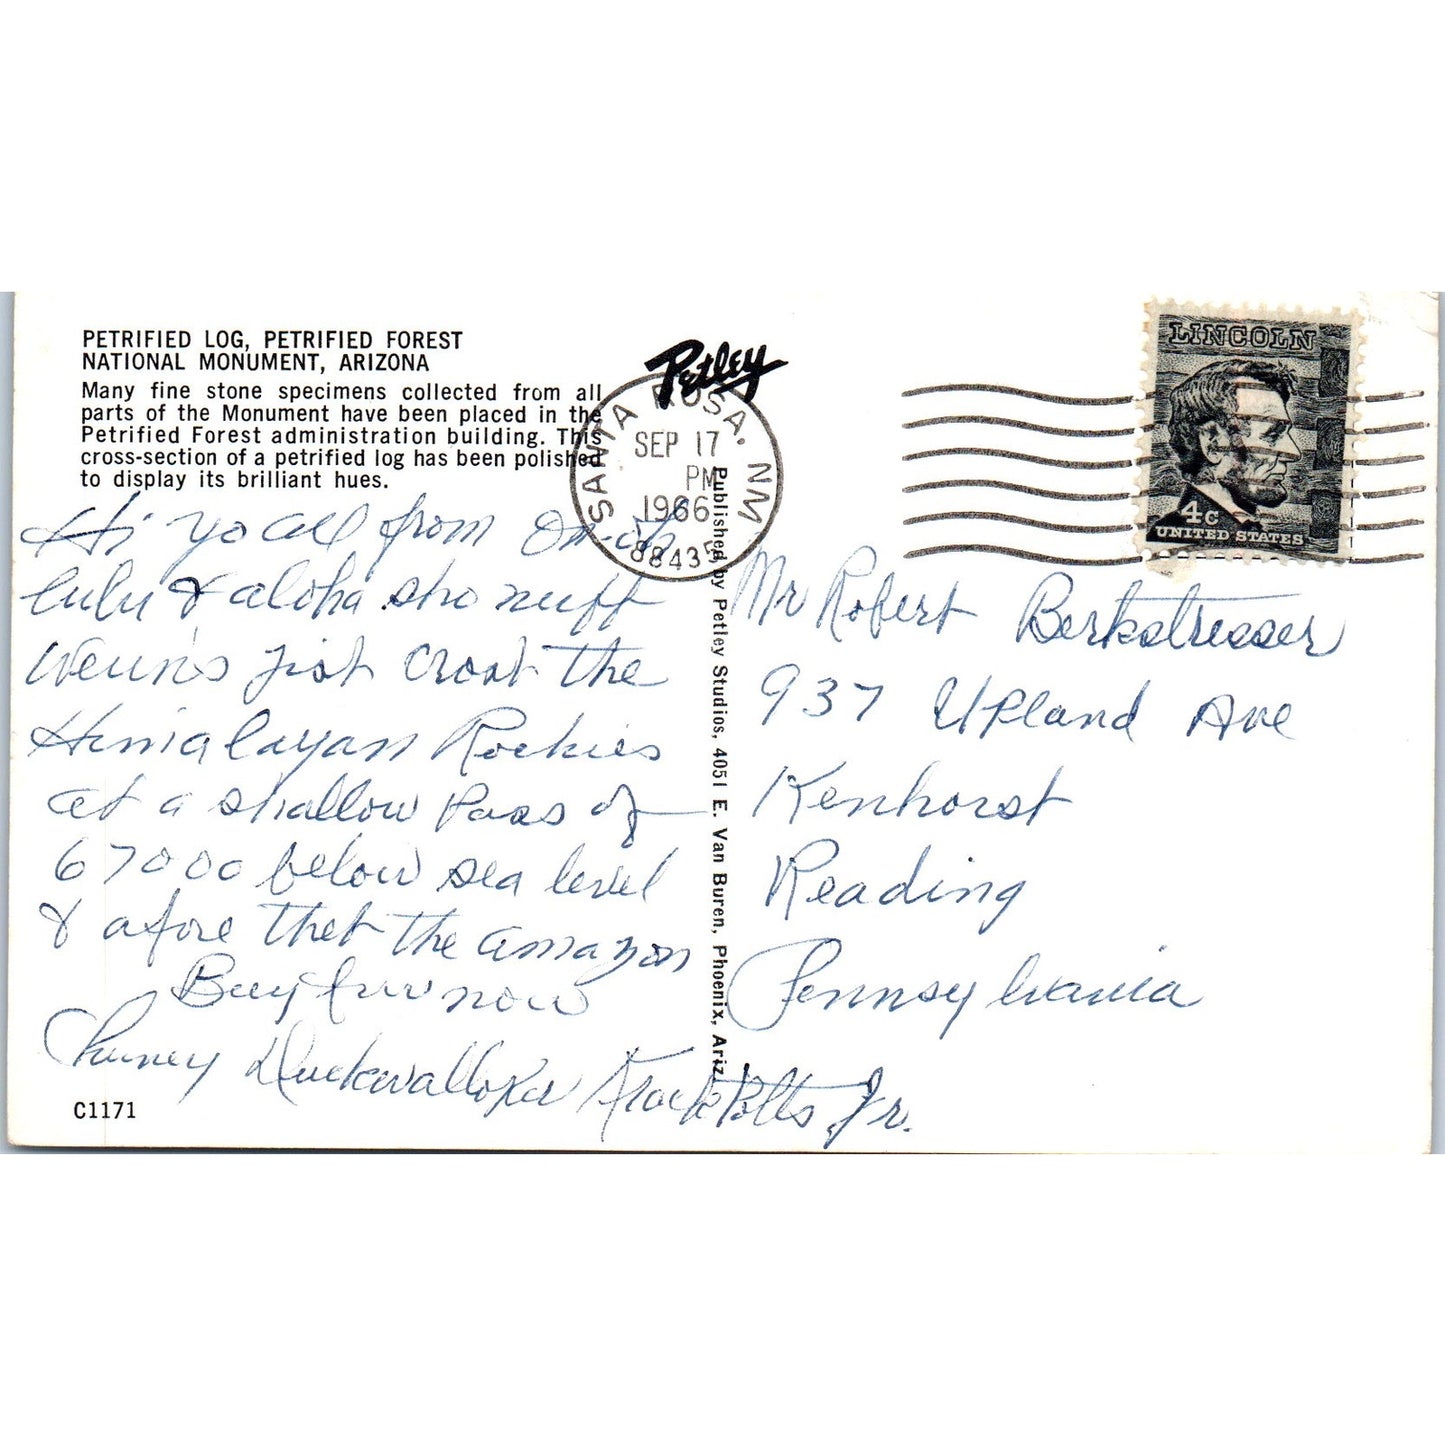 PETRIFIED LOG, PETRIFIED FOREST
NATIONAL MONUMENT, ARIZONA
Many fine stone specimens collected from all
parts of the Monument have been placed in the
Petrified Forest administration building. This
cross-section of a petrified log has been polished
to display its brilliant hues.
Hi yo all from
lulu & aloha sho nuff
weuns jist crost the
Himalayan Rockies
at a shallow Pass of
67000 below sea level
& afore thet the amazon
Bay fur now
Duckwalloper Krack Potts Jr.
C1171
Petley
SANTA ROSA, NM
SEP 17
PM
1966
88435
Published by Petley Studios, 4051 E. Van Buren, Phoenix, Ariz.
LINCOLN
4c
UNITED STATES
Mr Robert Berkstresser
937 Upland Ave
Kenhorst
Reading
Pennsylvania